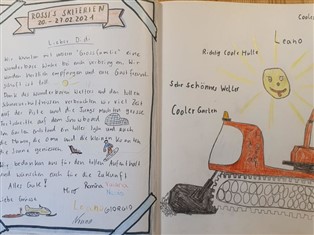 ROSSIS SKIFERIEN
20. - 27.02.2021
Liebes D.d.
Wir konnten mit unserer "Grossfamilie" eine
wunderbare Woche bei euch verbringen. Wir
wurden herzlich empfangen und eure Gastfreund-
schaft ist toll.
Dank des wunderbaren Wetters und den tollen
Schneeverhältnissen verbrachten wir viel Zeit
auf der Piste und die Jungs machten grosse
Fortschritte auf dem Snowboard.
Im Garten entstand ein tolles Iglu und auch
die Mamas, die Oma und die kleinen konnten
die Sonne geniessen.
Wir bedanken uns für den tollen Aufenthalt
und wünschen euch für die Zukunft
Alles Gute!
Liebe Grüsse
Romina
GIORGIO
Coole
Leano
Richtig Coole Hütte
Sehr Schönes Wetter
Cooler Garten